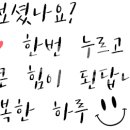 셨나요?
한번 누르고
큰 힘이 된답
복한 하루